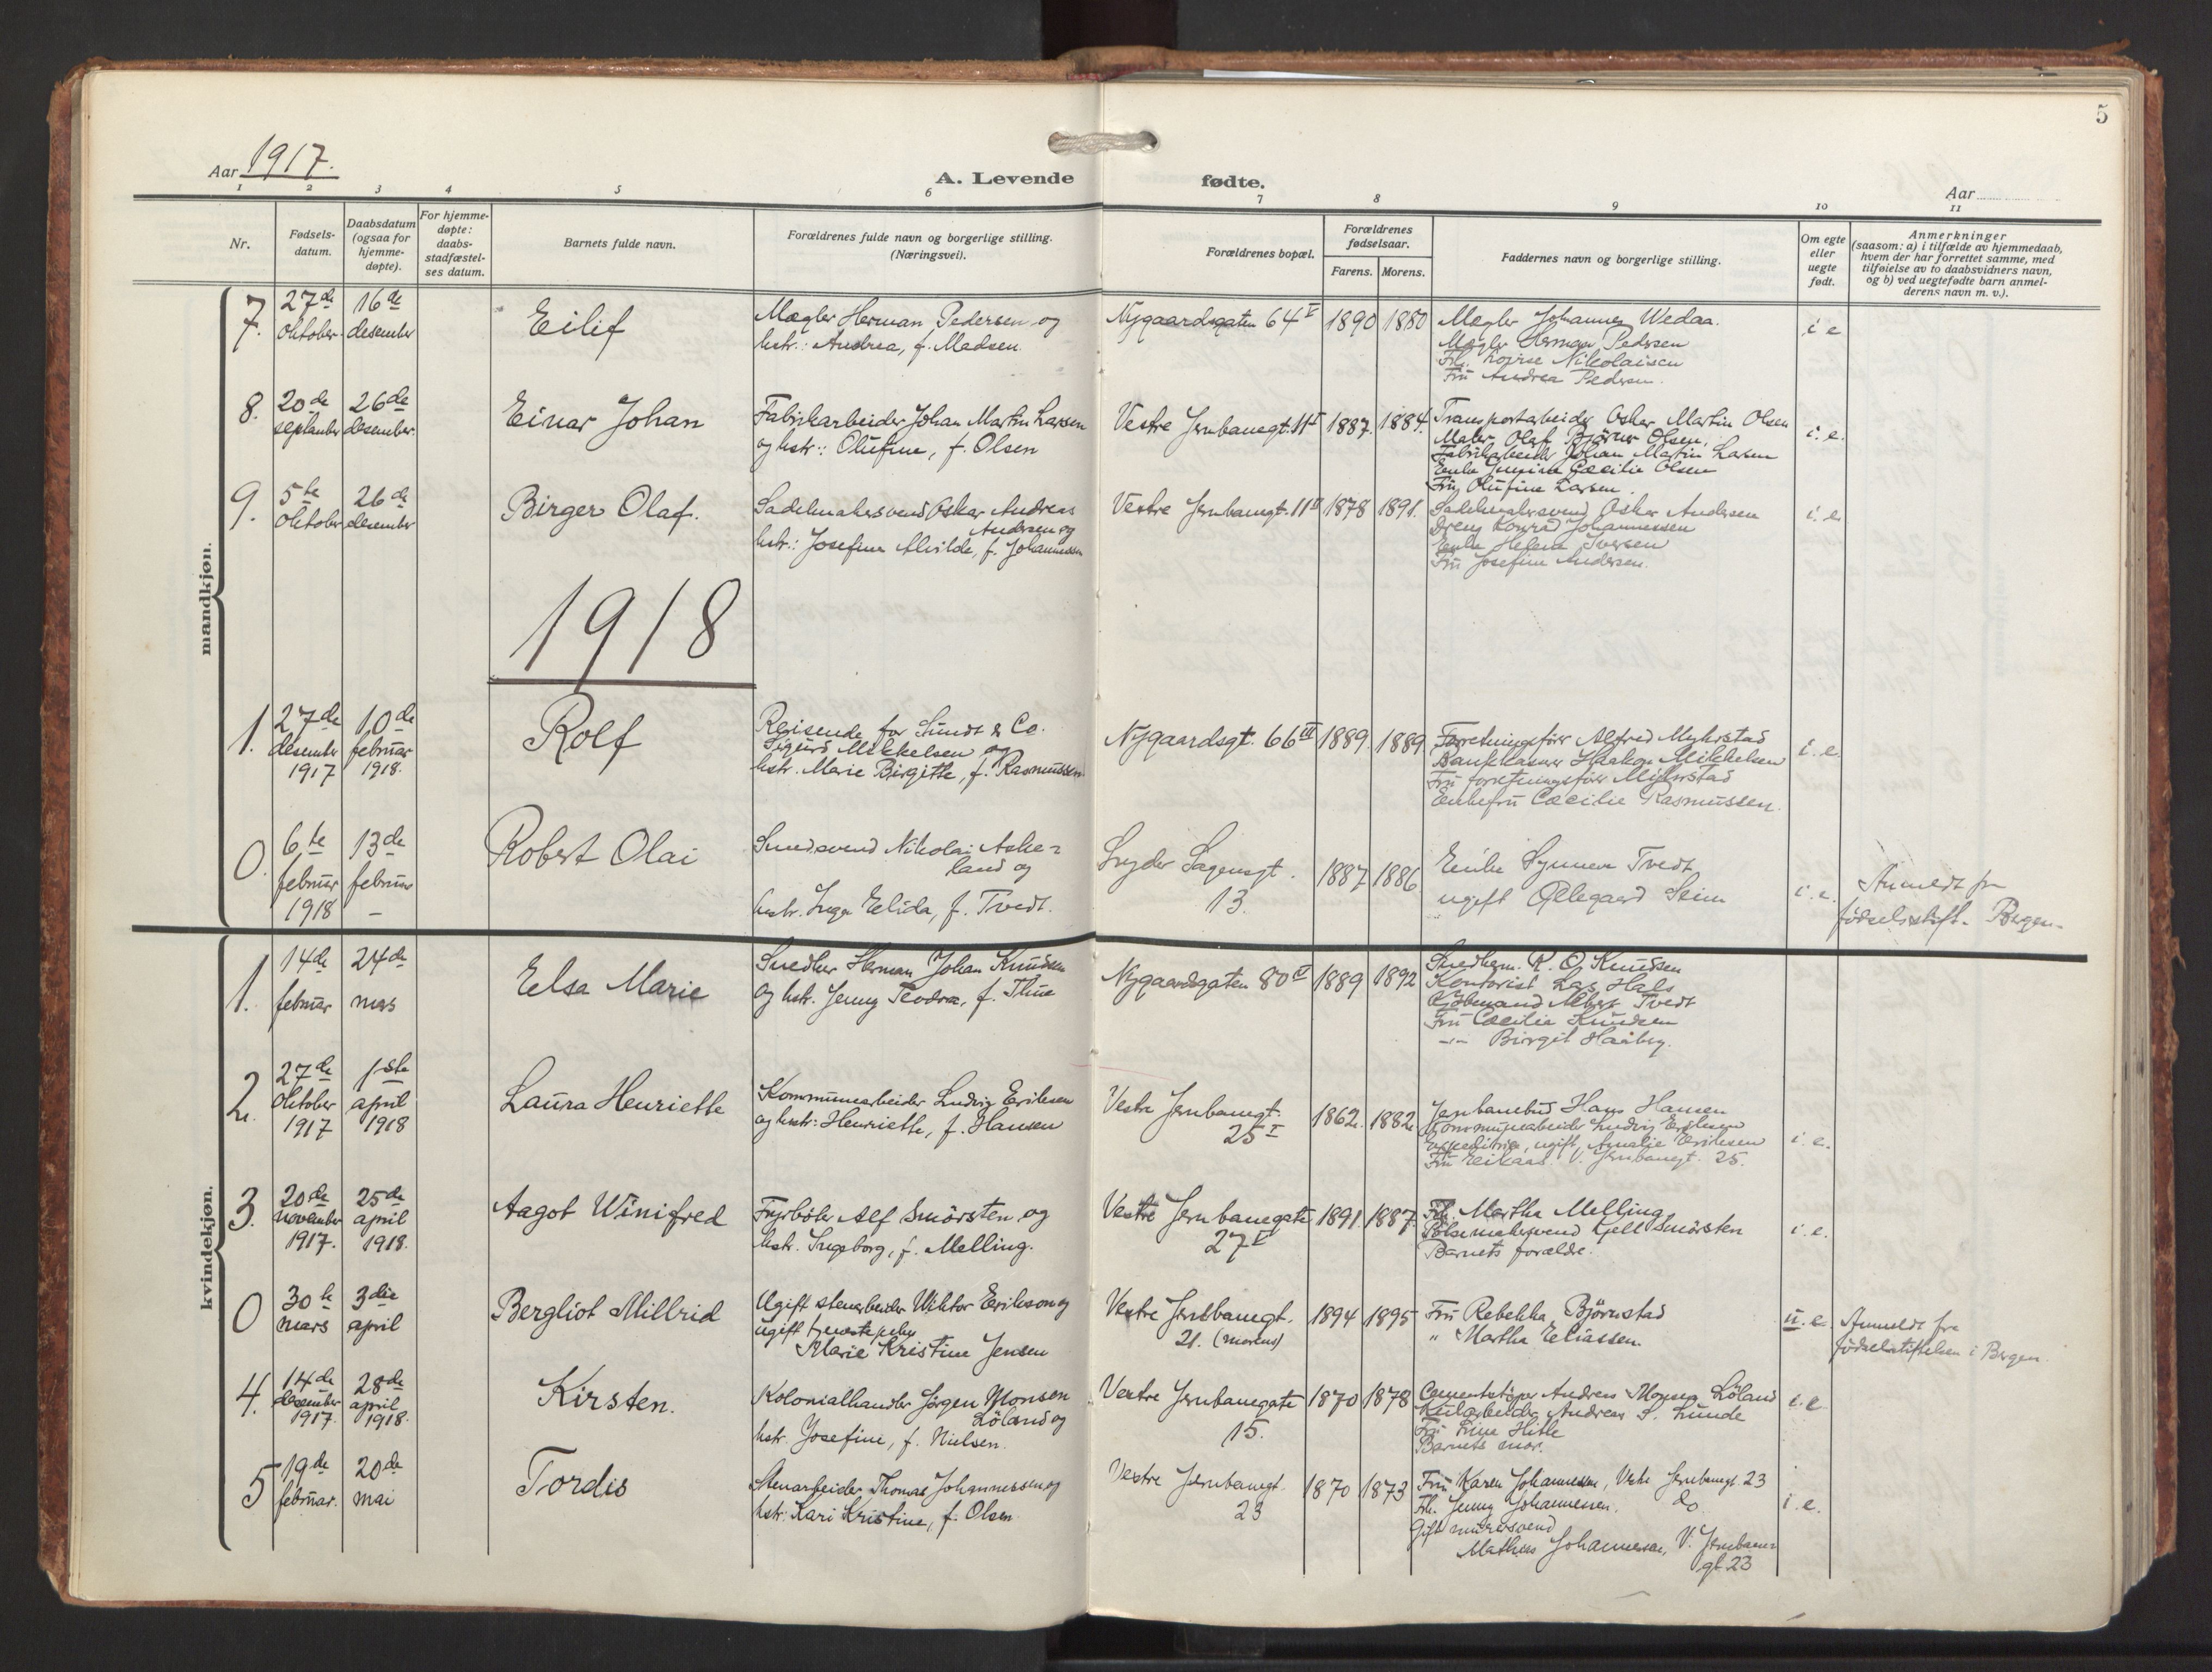 5
Aar 1917.
A. Levende fødte.
Aar
1 2 3 4 5 6 7 8 9 10 11
Nr.
Fødsels-
datum.
Daabsdatum
(ogsaa for
hjemme-
døpte).
For hjemme-
døpte:
daabs-
stadfæstel-
ses datum.
Barnets fulde navn.
Forældrenes fulde navn og borgerlige stilling.
(Næringsvei).
Forældrenes bopæl.
Forældrenes
fødselsaar.
Farens. Morens.
Faddernes navn og borgerlige stilling.
Om egte
eller
uegte
født.
Anmerkninger
(saasom: a) i tilfælde av hjemmedaab,
hvem der har forrettet samme, med
tilføielse av to daabsvidners navn,
og b) ved uegtefødte barn anmel-
derens navn m. v.).
mandkjøn.
7.
27de
oktober
16de
desember
Eilif
Mægler Herman Pedersen og
hstr.: Andrea, f. Madsen.
Nygaardsgaten 64 V
1890 1880
Mægler Johannes Wedaa.
Mægler Herman Pedersen
Frk. Lovise Nikolaisen
Fru Andrea Pedersen.
i e
8.
20de
september
26de
desember.
Einar Johan
Fabrikarbeider Johan Martin Larsen
og hstr.: Olufine, f. Olsen
Vestre Jernbanegt. 11 I
1887. 1884.
Transportarbeider Oskar Martin Olsen
Maler Olaf Bjørner Olsen.
Fabrikarbeider Johan Martin Larsen
Enke Cæcilie Olsen
Fru Olufine Larsen.
i. e.
9.
5te
oktober
26de
desember
Birger Olaf.
Sadelmakersvend Oskar Andreas
Andersen og
hstr.: Josefine Alvilde, f. Johannessen
Vestre Jernbanegt. 11 II
1878 1891.
Sadelmakersvend Oskar Andersen
Dreng Konrad Johannessen
Enke Helene Iversen
Fru Josefine Andersen.
i. e
1918
1.
27de
desember
1917
10de
februar
1918.
Rolf
Reisende for Sundt & Co.
Sigurd Mikkelsen og
hstr. Marie Birgitte, f. Rasmussen.
Nygaardsgt. 66 III
1889. 1889.
Forretningsfører Alfred Myhrstad
Bankkasser Haakon Mikkelsen
Fru forretningsfører Myhrstad
Enkefru Cæcilie Rasmussen.
i. e.
0.
6te
februar
1918
13de
februar
–
Robert Olai
Smedsvend Nikolai Aske=
land og
hstr. Inga Elida, f. Tvedt.
Lyder Sagensgt.
13.
1887 1886
Enke Synneva Tvedt
ugift Ollegaard Seim
i. e.
Anmeldt fra
fødselsstift. Bergen.
kvindekjøn.
1.
14de
februar
24de
mars
Elsa Marie
Snedker Herman Johan Knudsen
og hstr. Jenny Teodora, f. Thue
Nygaardsgaten 80 V
1889 1892
Snedkerm. R. O. Knudsen
Kontorist Lars Hals
Kjøbmand Albert Tvedt
Fru Cæcilie Knudsen
–"– Birgit Haaberg.
2.
27de
oktober
1917
1ste
april
1918
Laura Henriette
Kommunearbeider Ludvig Eriksen
og hstr: Henriette, f. Hansen
Vestre Jernbanegt.
25 I
1862. 1882.
Jernbanebud Hans Hansen
Kommunearbeider Ludvig Eriksen
Expeditrice, ugift, Amalie Eriksen
Fru Eikaas V. Jernbanegt. 25.
i. e.
3.
20de
november
1917.
25de
april
1918.
Aagot Winifred
Fyrbøter Alf Smørsten og
hstr. Ingeborg, f. Melling.
Vestre Jernbanegate
27 I
1891. 1887.
Frk. Martha Melling
Pølsemakersvend Kjell Smørsten
Barnets forældre.
i. e.
0
30te
mars
3die
april
Bergliot Millrid
Ugift stenarbeider Viktor Erikson og
ugift tjenestepike
Marie Kristine Jensen
Vestre Jernbanegt.
21. (morens)
1894 1895
Fru Rebekka Bjørnstad
" Martha Eliassen.
u. e.
Anmeldt fra
fødselsstiftelsen i Bergen.
4.
14de
desember
1917.
28de
april
1918.
Kirsten.
Kolonialhandler Jørgen Monsen
Løland og
hstr. Josefine, f. Nielsen.
Vestre Jernbanegate
15.
1870 1878
Cementstøper Andreas Monsen Løland
Kularbeider Andreas S. Lunde
Fru Trine Hitle
Barnets mor.
i. e
5
19de
februar.
20de
mai
Tordis
Stenarbeider Thomas Johannessen og
hstr: Kari Kristine, f. Olsen
Vestre Jernbanegt.
23
1870 1873
Fru Karen Johannessen, Vestre Jernbanegt. 23
Frk. Jenny Johannessen. do.
Gift murersvend
Mathias Johannessen, V. Jernbane-
gt 23
i. e.